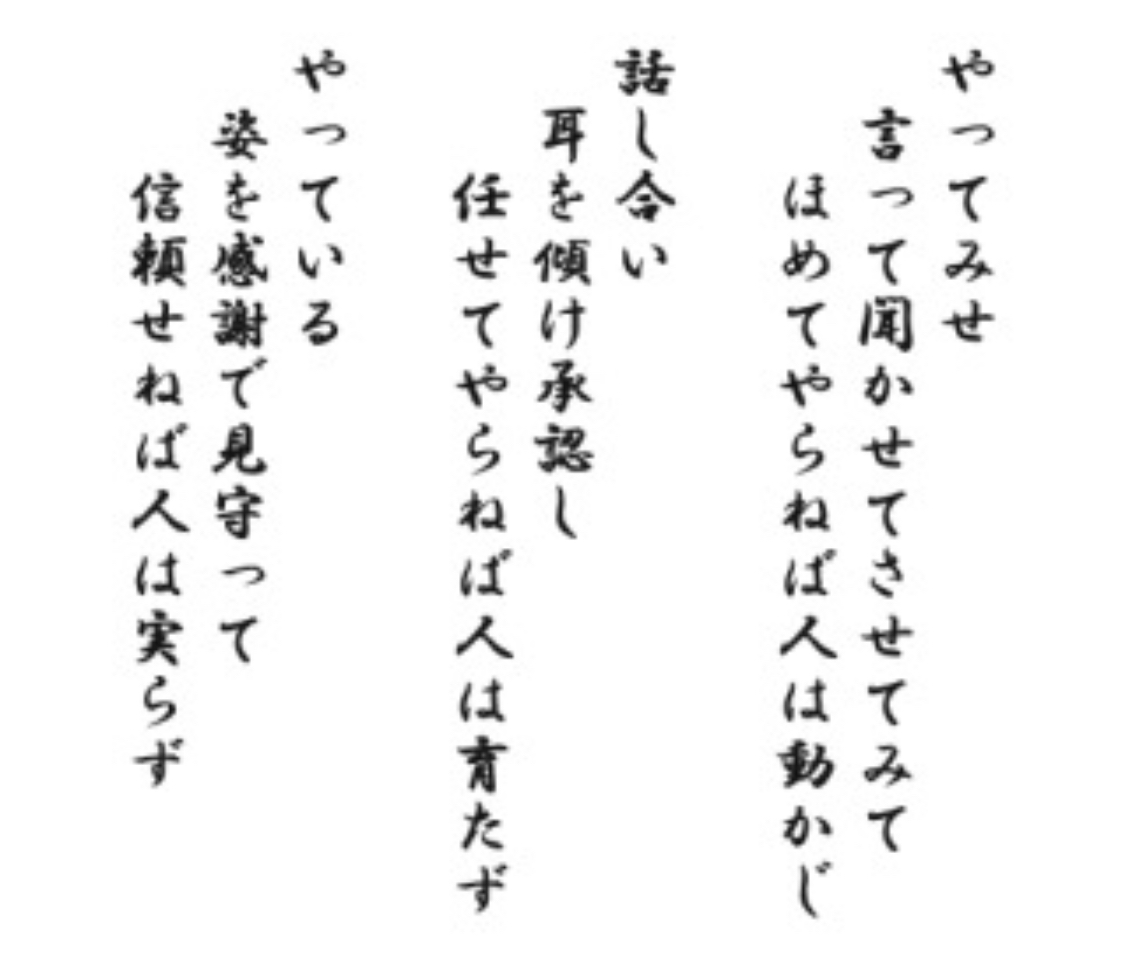 やってみせ
言って聞かせてさせてみて
ほめてやらねば人は動かじ
話し合い
耳を傾け承認し
任せてやらねば人は育たず
やっている
姿を感謝で見守って
信頼せねば人は実らず